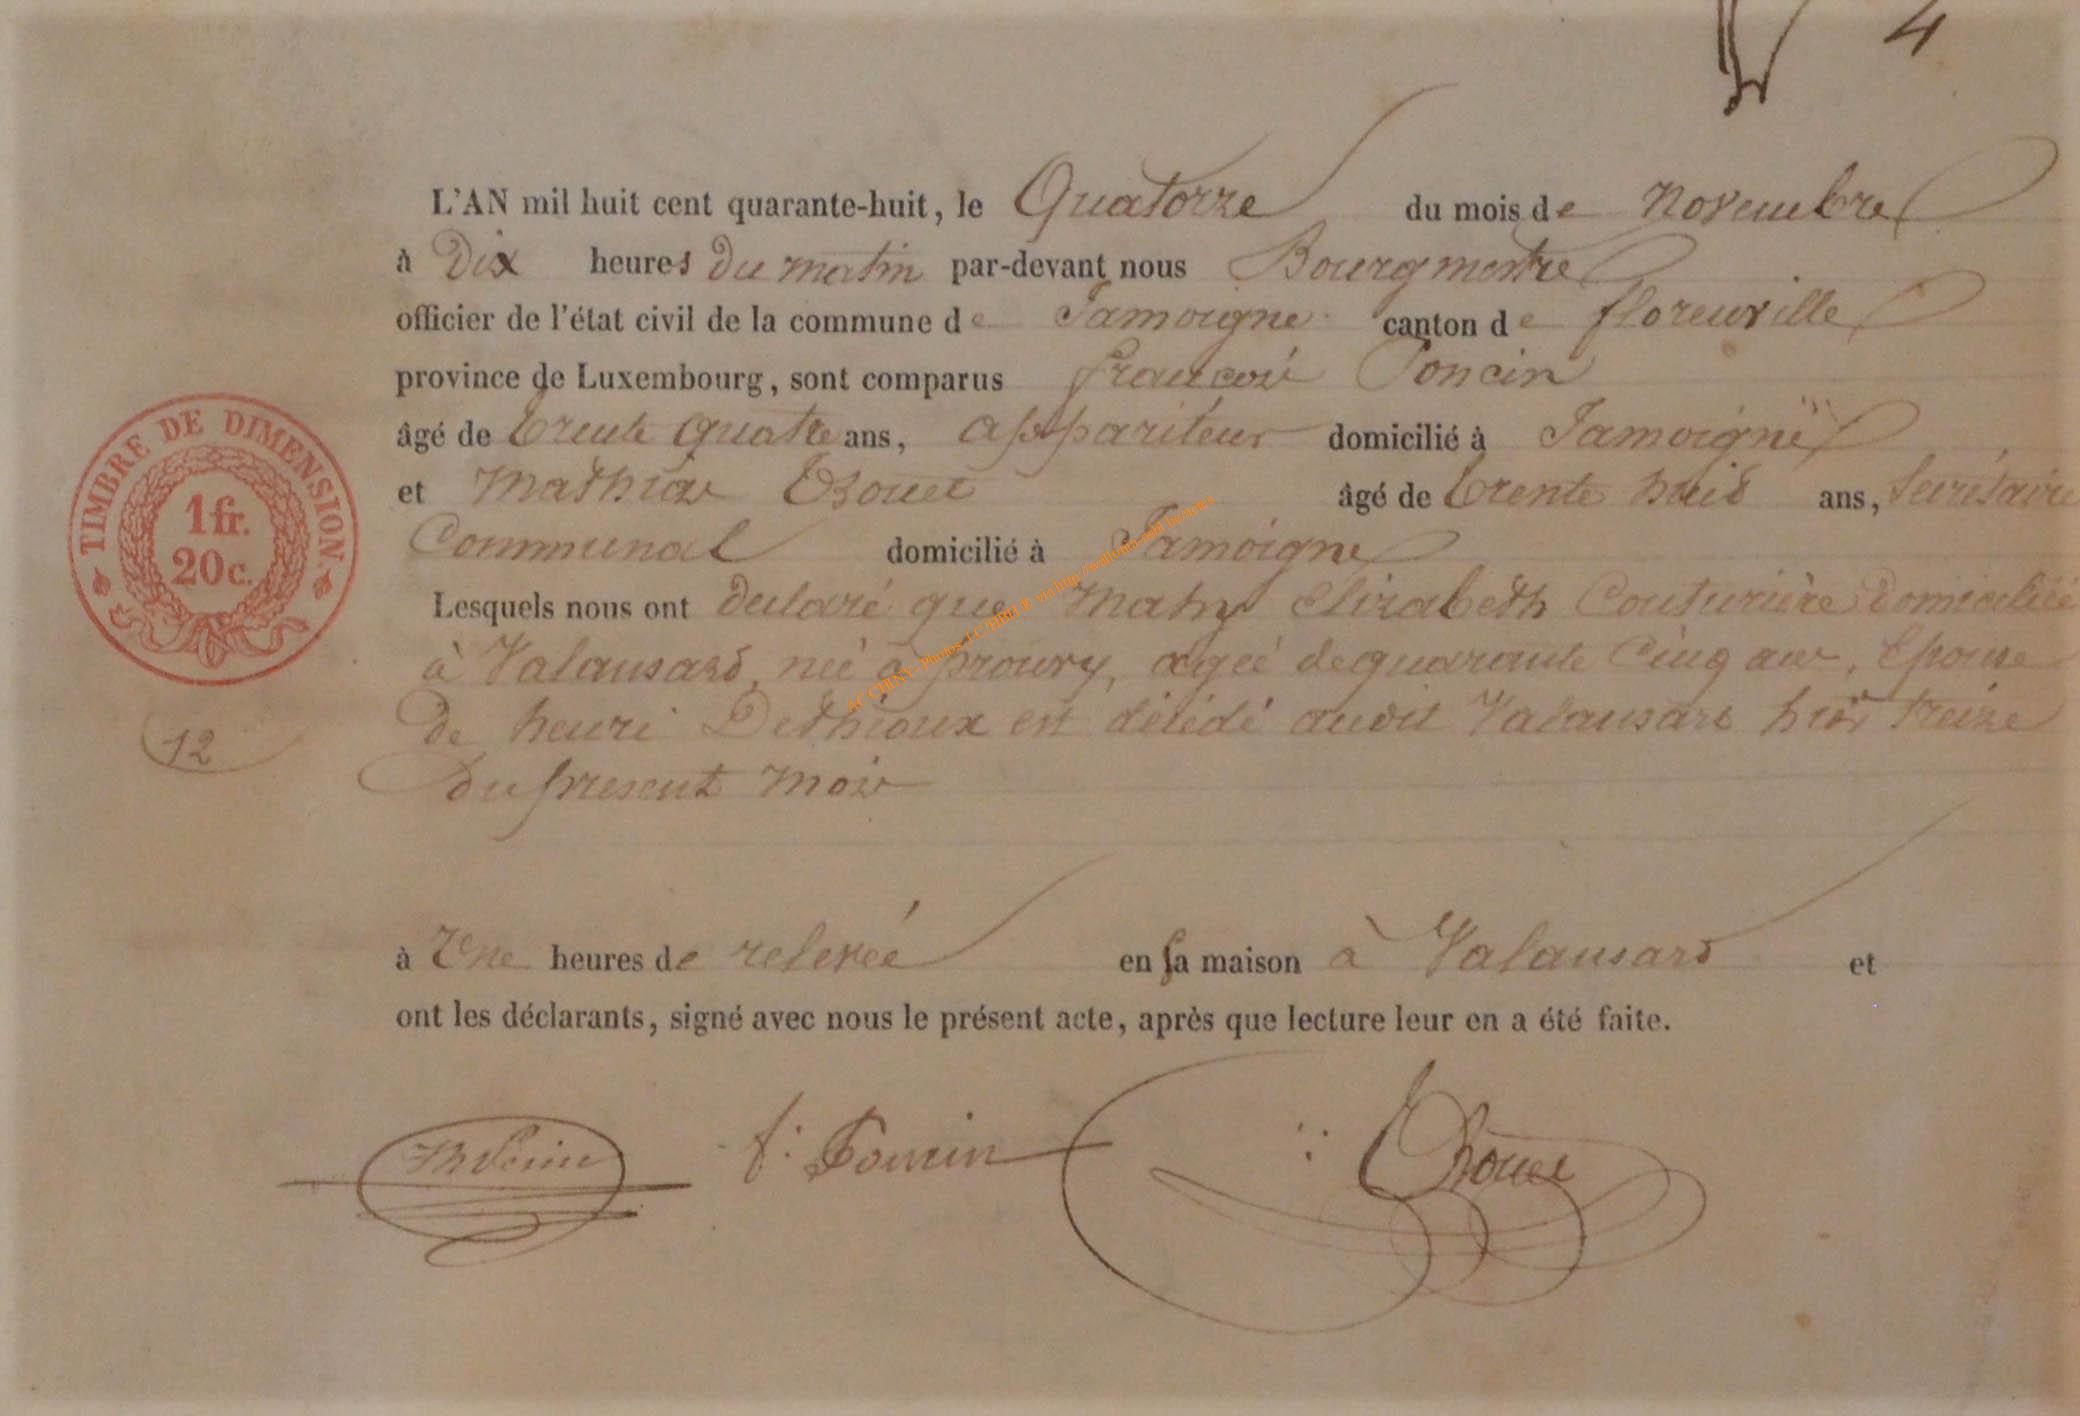 4
L'AN mil huit cent quarante-huit, le Quatorze du mois de Novembre
à Dix heures du matin par-devant nous Bourgmestre
officier de l'état civil de la commune de Jamoigne canton de florenville
province de Luxembourg, sont comparus françois Poncin
âgé de trente quatre ans, appariteur domicilié à Jamoigne
et Mathias âgé de trente huit ans, Secrétaire
Communal domicilié à Jamoigne
Lesquels nous ont declaré que Mahy Elizabeth Couturière Domiciliée
à Valansard, née à prouvy, agée de quarante Cinq ans, Epouse
De henri Dethioux est décédé audit Valansart hier treize
Du present mois
à Une heures de relevée en sa maison à Valansard et
ont les déclarants, signé avec nous le présent acte, après que lecture leur en a été faite.
f: Poncin
TIMBRE DE DIMENSION.
1 fr.
20 c.
12
AC CHINY - Photos J.C HIBLE via http://wallonia-asbl.be/news